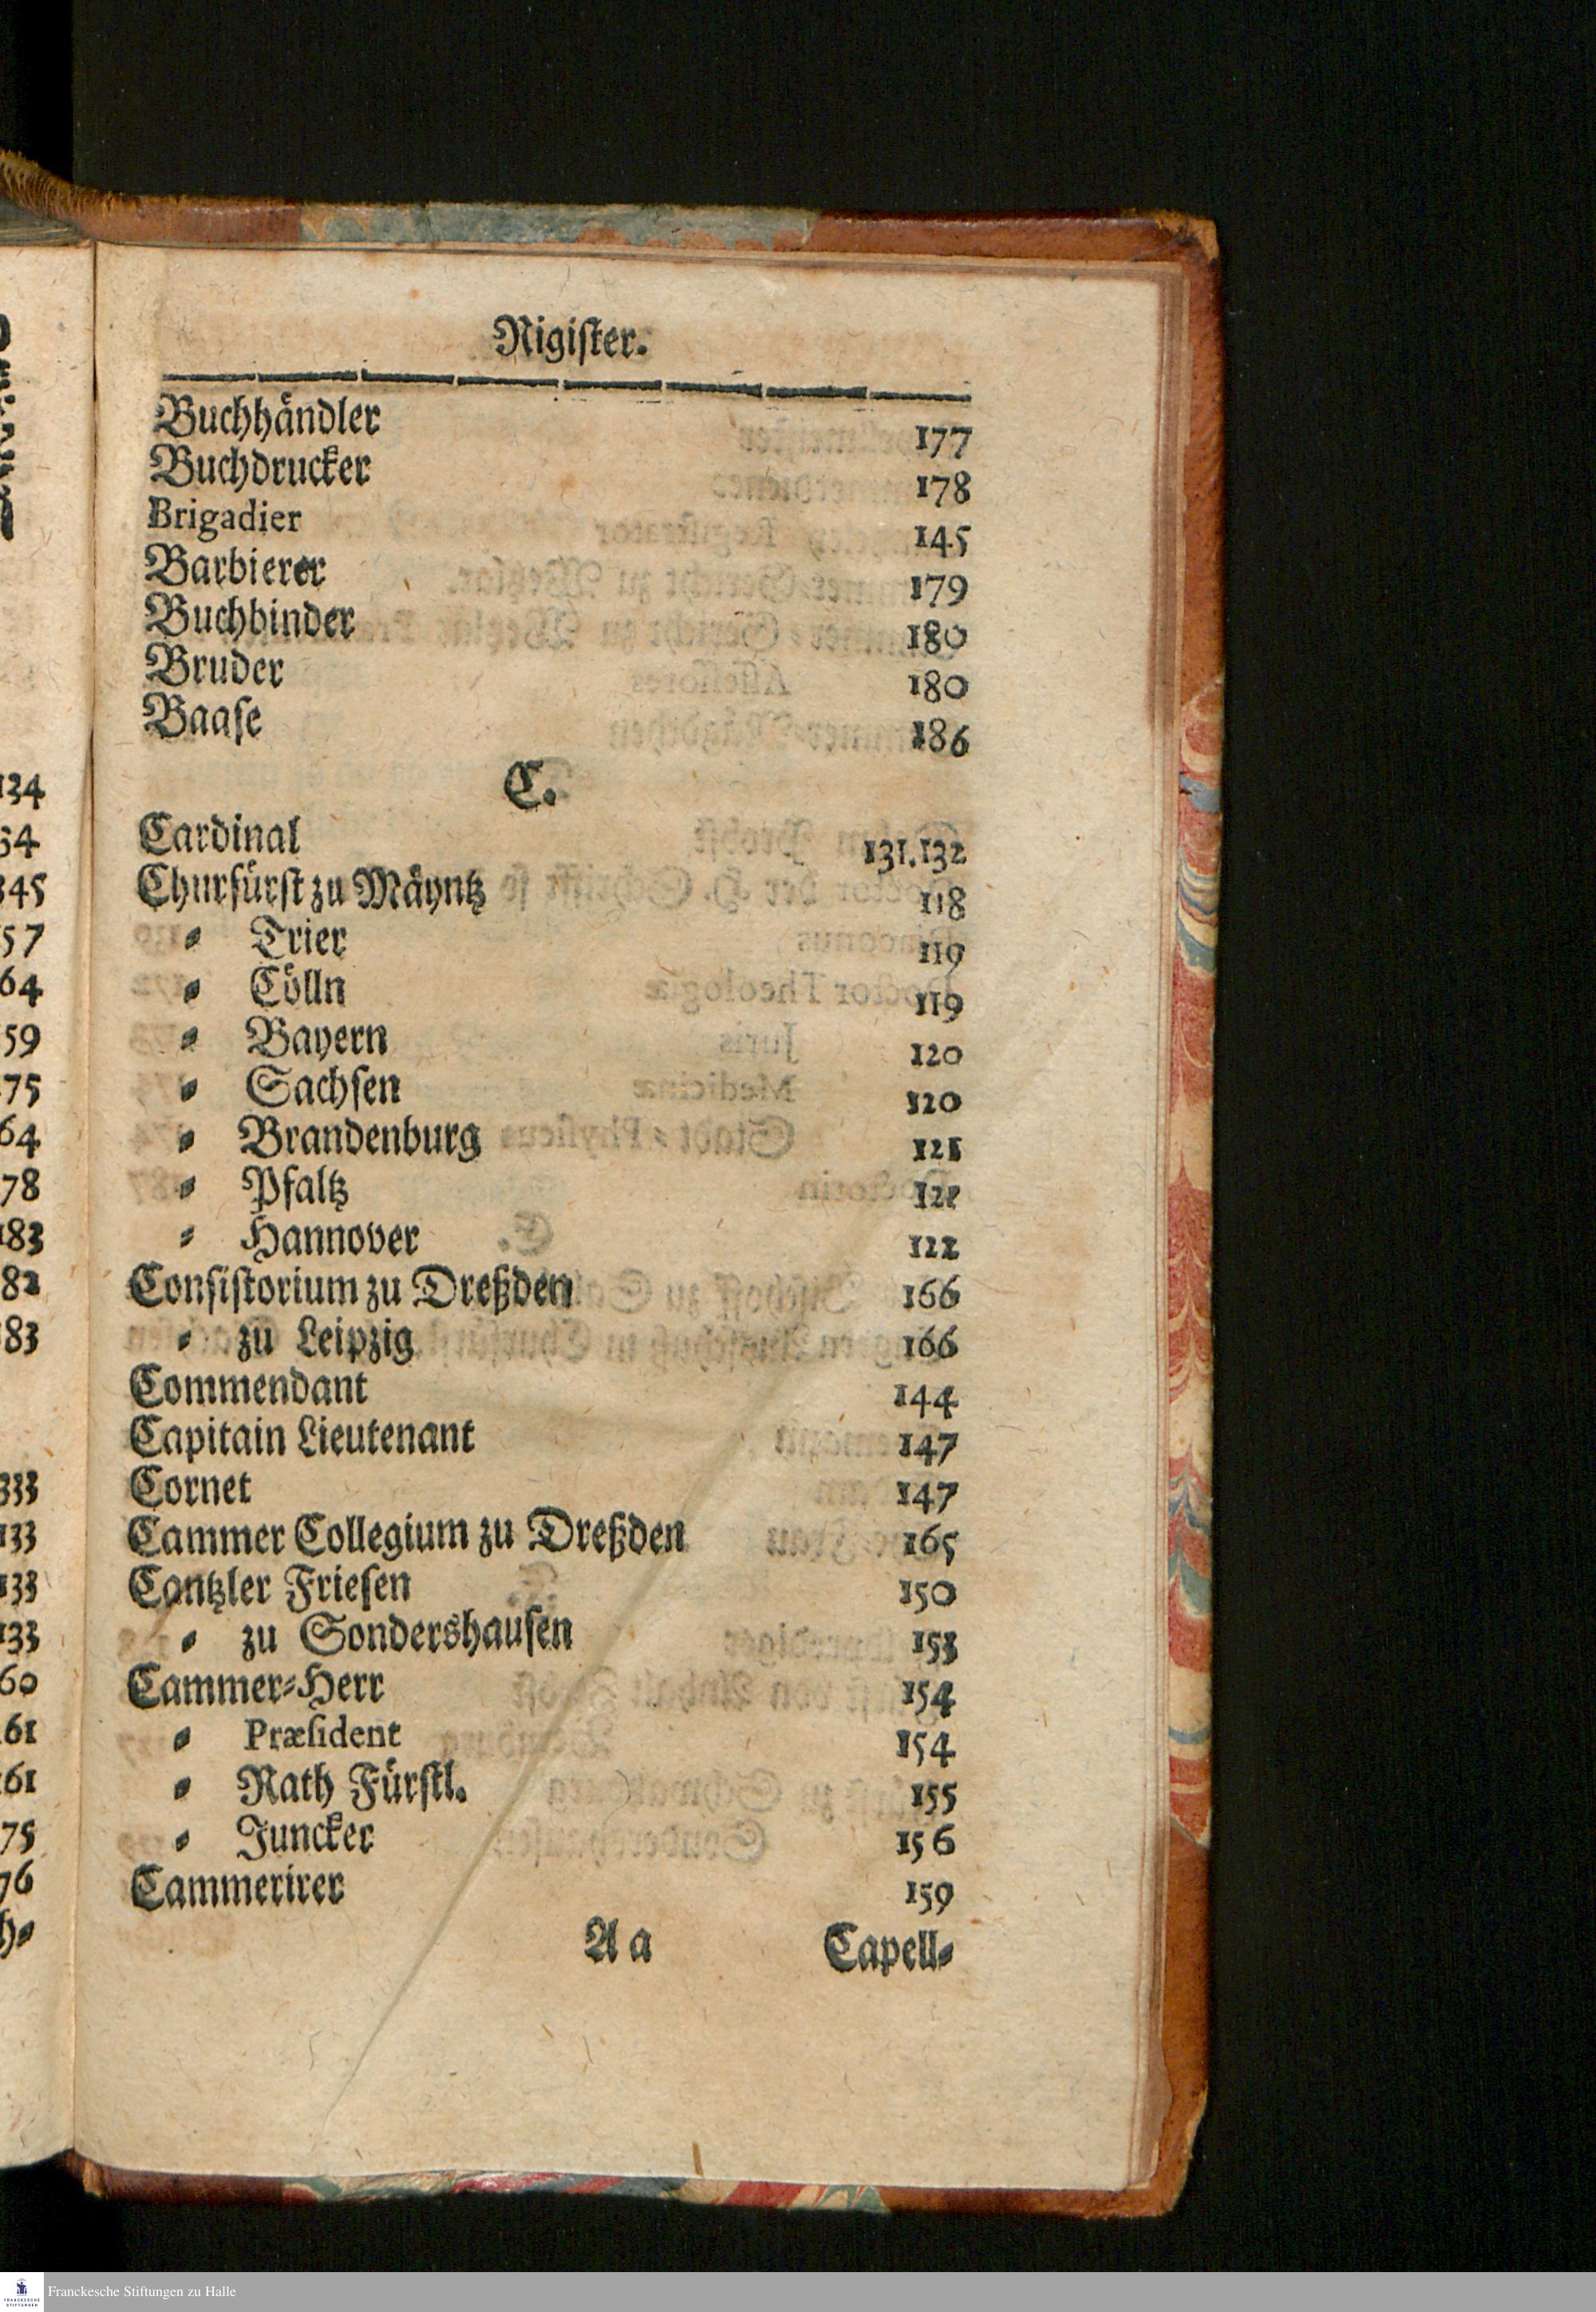 Rigiſter.
Buchhändler 177
Buchdrucker 178
Brigadier 145
Barbierer 179
Buchbinder 180
Bruder 180
Baaſe 186
C.
Cardinal 131.132
Churfürſt zu Mäyntz 118
⸗ Trier 119
⸗ Cölln 119
⸗ Bayern 120
⸗ Sachſen 120
⸗ Brandenburg 121
⸗ Pfaltz 121
⸗ Hannover 122
Conſiſtorium zu Dreßden 166
⸗ zu Leipzig 166
Commendant 144
Capitain Lieutenant 147
Cornet 147
Cammer Collegium zu Dreßden 165
Cantzler Frieſen 150
⸗ zu Sondershauſen 153
Cammer⸗Herr 154
⸗ Præſident 154
⸗ Rath Fürſtl. 155
⸗ Juncker 156
Cammerirer 159
A a Capell⸗
134
345
57
64
59
75
64
78
183
82
83
333
133
133
133
60
61
161
75
76
Franckesche Stiftungen zu Halle
FRANCKESCHE
STIFTUNGEN